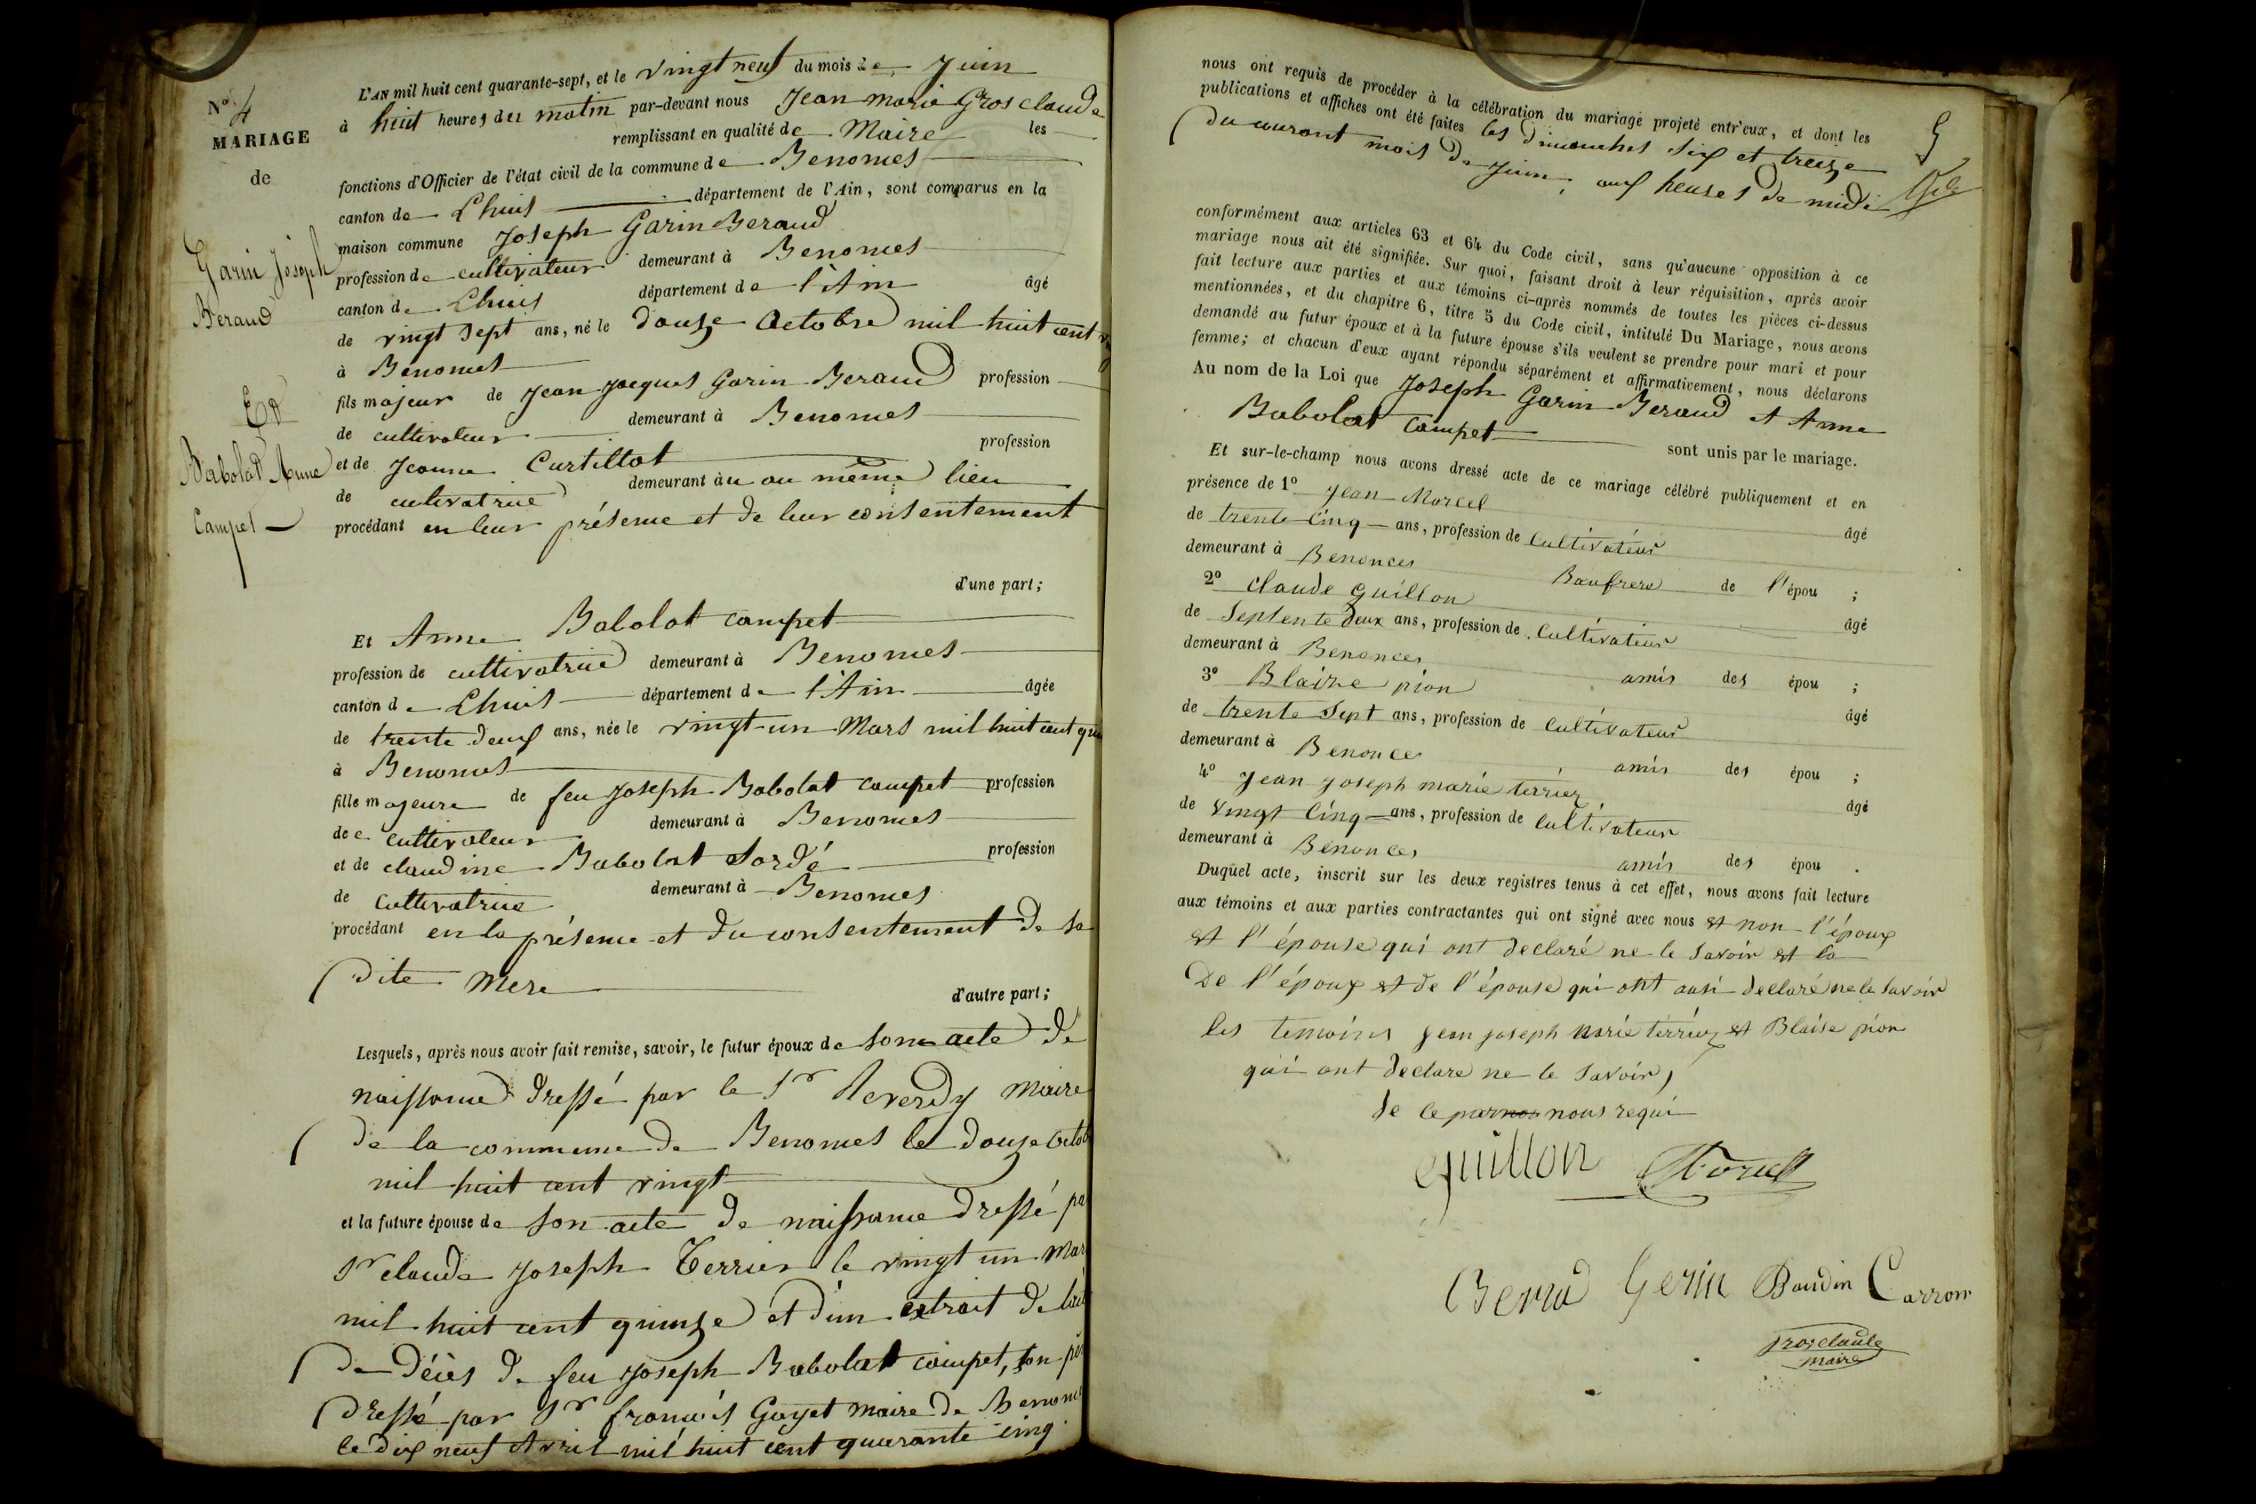 N° 4
MARIAGE
de
Garin Joseph
Beraud
Et
Babolat Anne
Campet
L'AN mil huit cent quarante-sept, et le vingt neuf du mois de Juin
à huit heures du matin par-devant nous Jean marie Grosclaude
remplissant en qualité de Maire les
fonctions d'Officier de l'état civil de la commune de Benonces
canton de Lhuis département de l'Ain, sont comparus en la
maison commune Joseph Garin Beraud
profession de cultivateur demeurant à Benonces
canton de Lhuis département de l'Ain âgé
de vingt sept ans, né le douze Octobre mil huit cent
à Benonces
fils majeur de Jean Jacques Garin Beraud profession
de cultivateur demeurant à Benonces
et de Jeanne Curtillat profession
de cultivatrice demeurant àu au même lieu
procédant en leur présence et de leur consentement
d'une part;
Et Anne Babolat campet
profession de cultivatrice demeurant à Benonces
canton de Lhuis département de l'Ain âgée
de trente deux ans, née le vingt-un Mars mil huit cent
à Benonces
fille majeure de feu Joseph Babolat campet profession
de cultivateur demeurant à Benonces
et de claudine Babolat Sordé profession
de cultivatrice demeurant à Benonces
procédant en la présence et du consentement de sa
dite Mere
d'autre part;
Lesquels, après nous avoir fait remise, savoir, le futur époux de son acte de
naissance dressé par le Sr Reverdy Maire
de la commune de Benonces le douze
mil huit cent vingt
et la future épouse de son acte de naissance dressé
Sr claude Joseph Terrier le vingt un
mil huit cent quinze et d'un extrait de
de décès de feu Joseph Babolat campet, son
dressé par Sr françois Guyet maire de
le dix neuf Avril mil huit cent quarante cinq
nous ont requis de procéder à la célébration du mariage projeté entr'eux, et dont les
publications et affiches ont été faites les dimanches six et treize
du courant mois de Juin, aux heures de midi
conformément aux articles 63 et 64 du Code civil, sans qu'aucune opposition à ce
mariage nous ait été signifiée. Sur quoi, faisant droit à leur réquisition, après avoir
fait lecture aux parties et aux témoins ci-après nommés de toutes les pièces ci-dessus
mentionnées, et du chapitre 6, titre 5 du Code civil, intitulé Du Mariage, nous avons
demandé au futur époux et à la future épouse s'ils veulent se prendre pour mari et pour
femme; et chacun d'eux ayant répondu séparément et affirmativement, nous déclarons
Au nom de la Loi que Joseph Garin Beraud et Anne
Babolat Campet sont unis par le mariage.
Et sur-le-champ nous avons dressé acte de ce mariage célébré publiquement et en
présence de 1° Jean Morcel âgé
de trente cinq ans, profession de cultivateur
demeurant à Benonces Baufrere de l'épou ;
2° claude guillon âgé
de Septente deux ans, profession de cultivateur
demeurant à Benonces amis des épou ;
3° Blaize pion âgé
de trente Sept ans, profession de cultivateur
demeurant à Benonce amis des épou ;
4° jean joseph marie terrier âgé
de vingt cinq ans, profession de cultivateur
demeurant à Benonces amis des épou .
Duquel acte, inscrit sur les deux registres tenus à cet effet, nous avons fait lecture
aux témoins et aux parties contractantes qui ont signé avec nous et non l'époux
et l'épouse qui ont declaré ne le Savoir et la
De l'époux et de l'épouse qui ont ausi declaré ne le Savoir
les temoins jean joseph marie terrier et Blaise pion
qui ont declare ne le Savoir,
de ce par nous requi
guillon Morcel
Berad Gerin Baudin Carron
grosclaude
maire